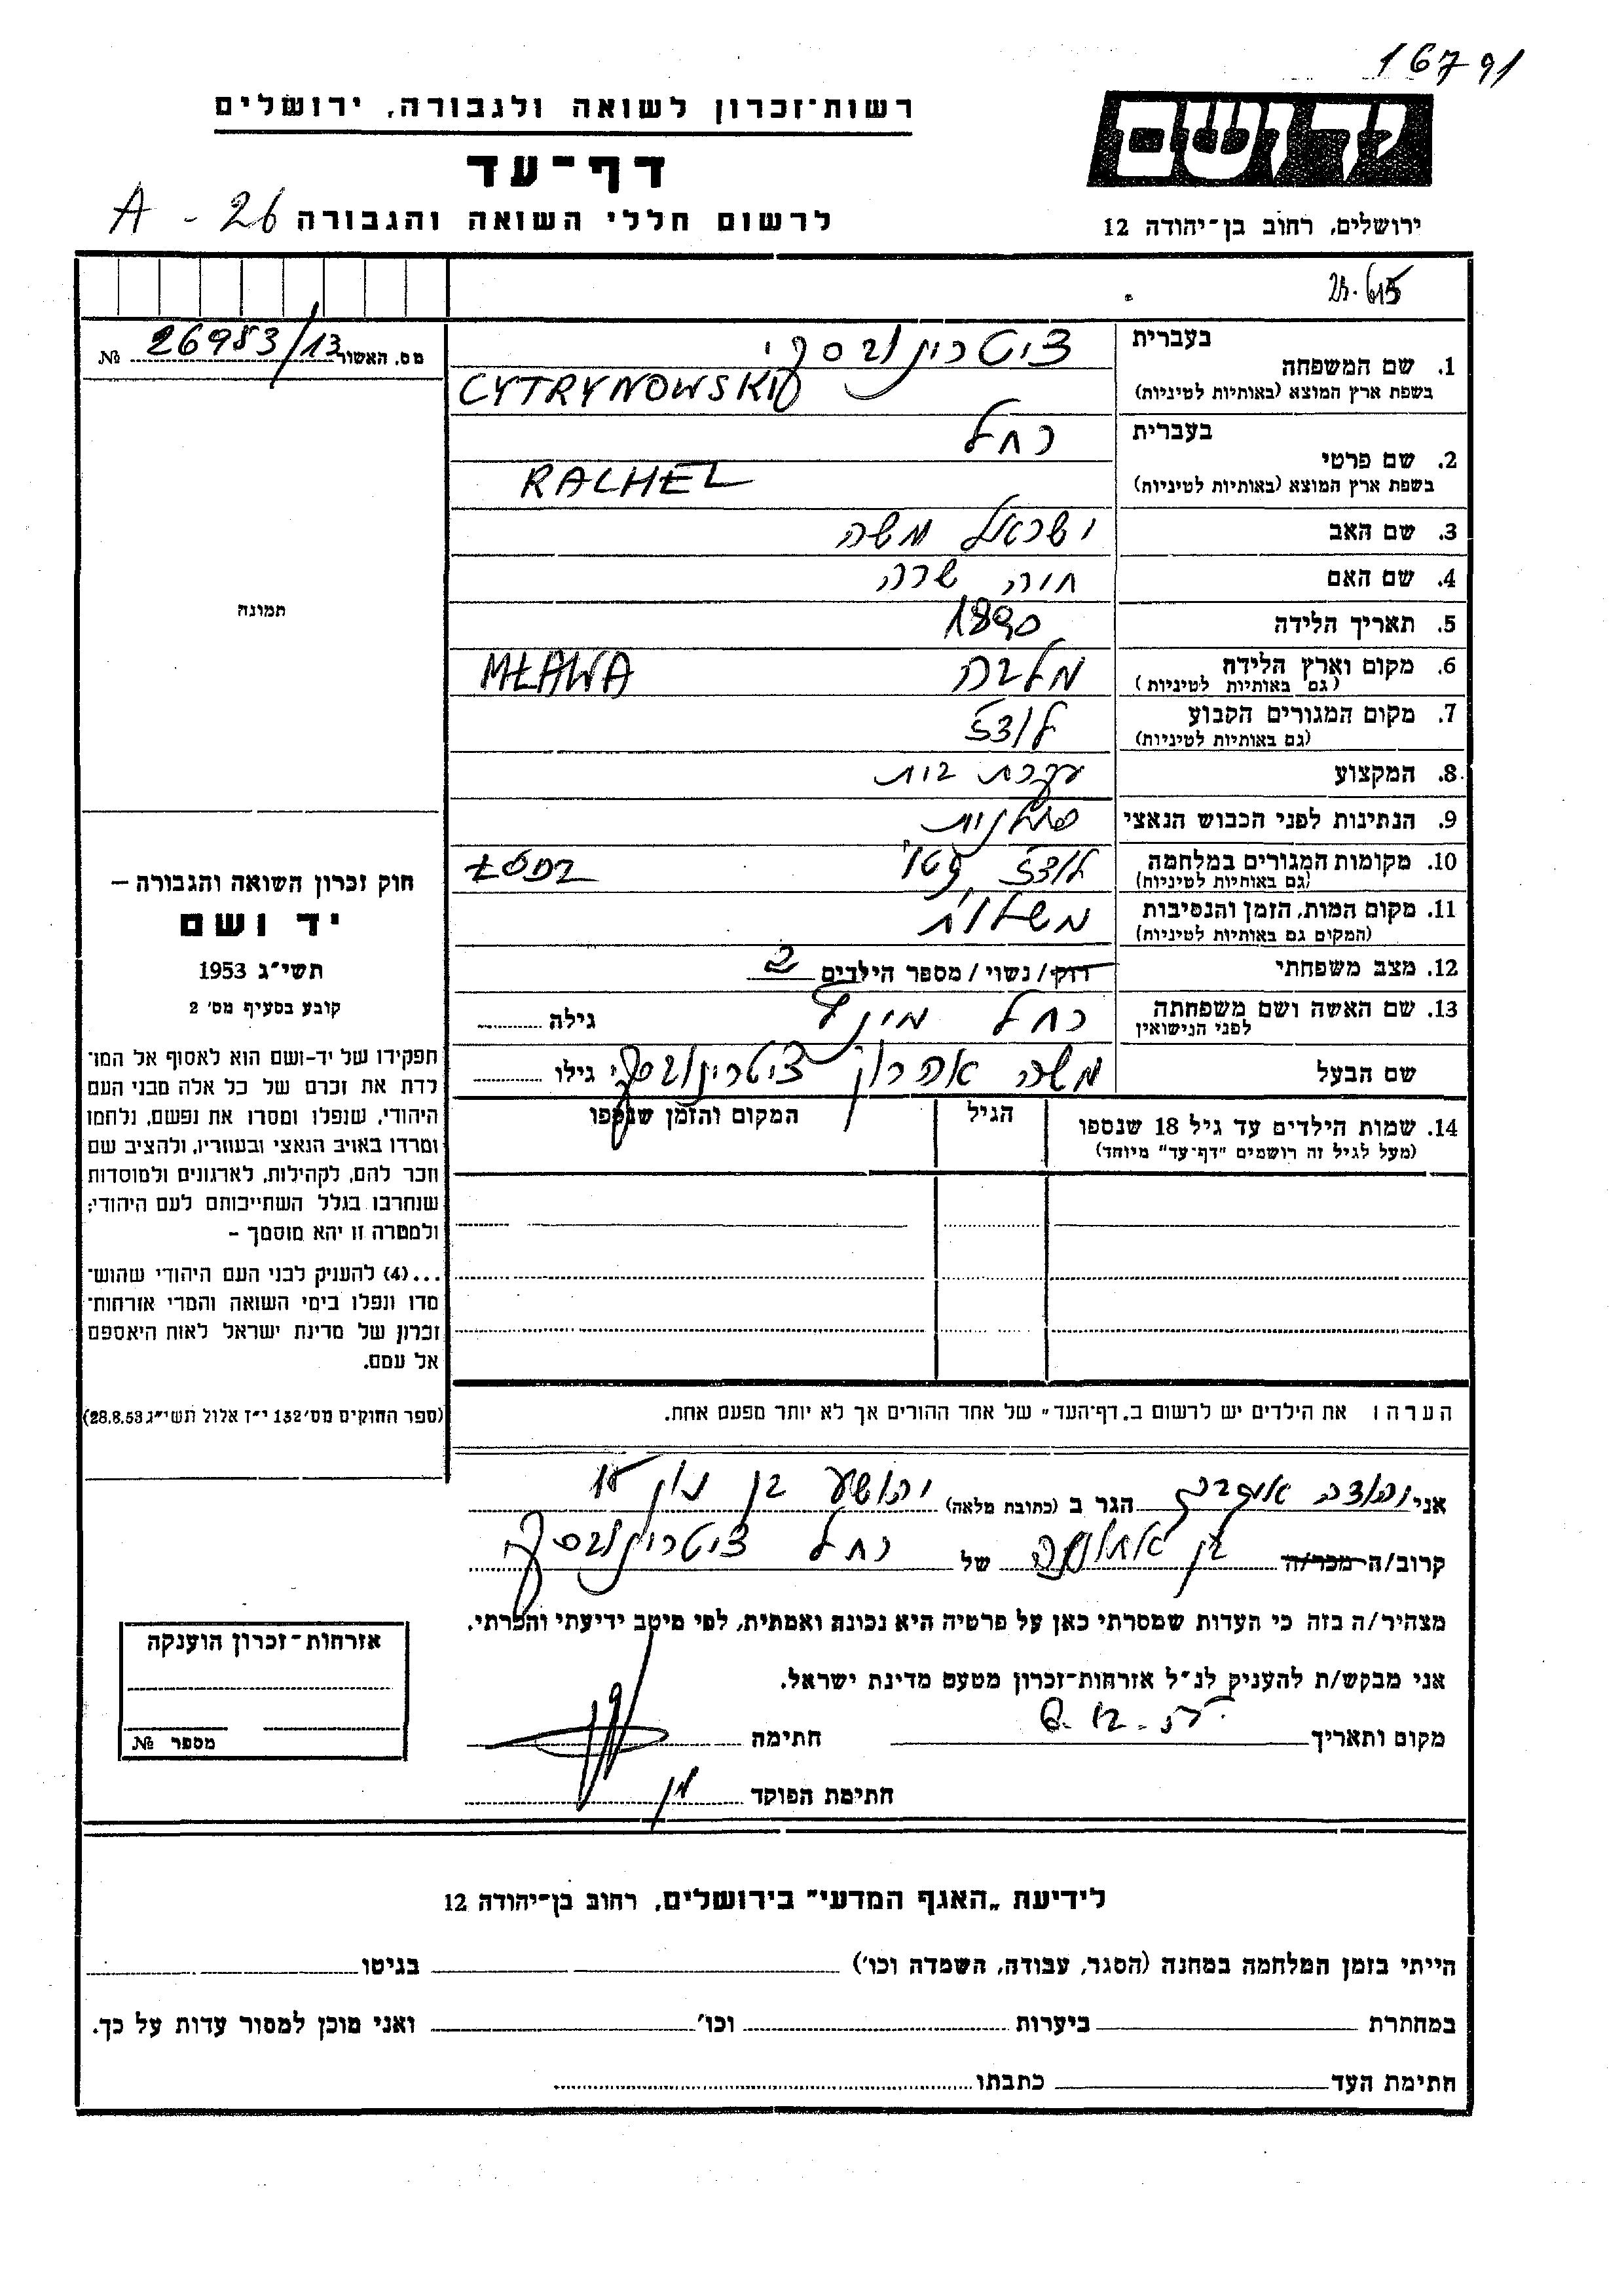 16791
רשות־זכרון לשואה ולגבורה, ירושלים
יד ושם
דף־עד
לרשום חללי השואה והגבורה
A - 26
ירושלים, רחוב בן־יהודה 12
בעברית
ציטרינובסקי
1. שם המשפחה
בשפת ארץ המוצא (באותיות לטיניות)
CYTRYNOWSKI
בעברית
רחל
2. שם פרטי
בשפת ארץ המוצא (באותיות לטיניות)
RACHEL
3. שם האב ישראל משה
4. שם האם חיה שרה
5. תאריך הלידה 1890
6. מקום וארץ הלידה מלבה MŁAWA
(גם באותיות לטיניות)
7. מקום המגורים הקבוע לודז
(גם באותיות לטיניות)
8. המקצוע עקרת בית
9. הנתינות לפני הכבוש הנאצי פולנית
10. מקומות המגורים במלחמה לודז גטו
(גם באותיות לטיניות)
11. מקום המות, הזמן והנסיבות משלוח
(המקום גם באותיות לטיניות)
12. מצב משפחתי רוק/ נשוי / מספר הילדים 2
13. שם האשה ושם משפחתה רחל גילה
לפני הנישואין
שם הבעל משה אהרון ציטרינובסקי גילו
14. שמות הילדים עד גיל 18 שנספו
(מעל לגיל זה רושמים "דף־עד" מיוחד)
הגיל
המקום והזמן שנספו
הערה: את הילדים יש לרשום ב„דף־העד" של אחד ההורים אך לא יותר מפעם אחת.
מס. האשור 26983/13 №
תמונה
חוק זכרון השואה והגבורה –
יד ושם
תשי"ג 1953
קובע בסעיף מס' 2
תפקידו של יד-ושם הוא לאסוף אל המו־
לדת את זכרם של כל אלה מבני העם
היהודי, שנפלו ומסרו את נפשם, נלחמו
ומרדו באויב הנאצי ובעוזריו, ולהציב שם
וזכר להם, לקהילות, לארגונים ולמוסדות
שנחרבו בגלל השתייכותם לעם היהודי;
ולמטרה זו יהא מוסמך –
...(4) להעניק לבני העם היהודי שהוש־
מדו ונפלו בימי השואה והמרי אזרחות־
זכרון של מדינת ישראל לאות היאספם
אל עמם.
(ספר החוקים מס' 132 י"ז אלול תשי"ג 28.8.53)
אני יהודה הגר ב (כתובת מלאה) יהושע בן נון
קרוב/ה מכר/ה בן אחותה של רחל ציטרינובסקי
מצהיר/ה בזה כי העדות שמסרתי כאן על פרטיה היא נכונה ואמתית, לפי מיטב ידיעתי והכרתי.
אני מבקש/ת להעניק לנ"ל אזרחות־זכרון מטעם מדינת ישראל.
מקום ותאריך חתימה
חתימת הפוקד
אזרחות־זכרון הוענקה
מספר №
לידיעת „האגף המדעי" בירושלים, רחוב בן־יהודה 12
הייתי בזמן המלחמה במחנה (הסגר, עבודה, השמדה וכו') בגיטו
במחתרת ביערות וכו' ואני מוכן למסור עדות על כך.
חתימת העד כתבתו